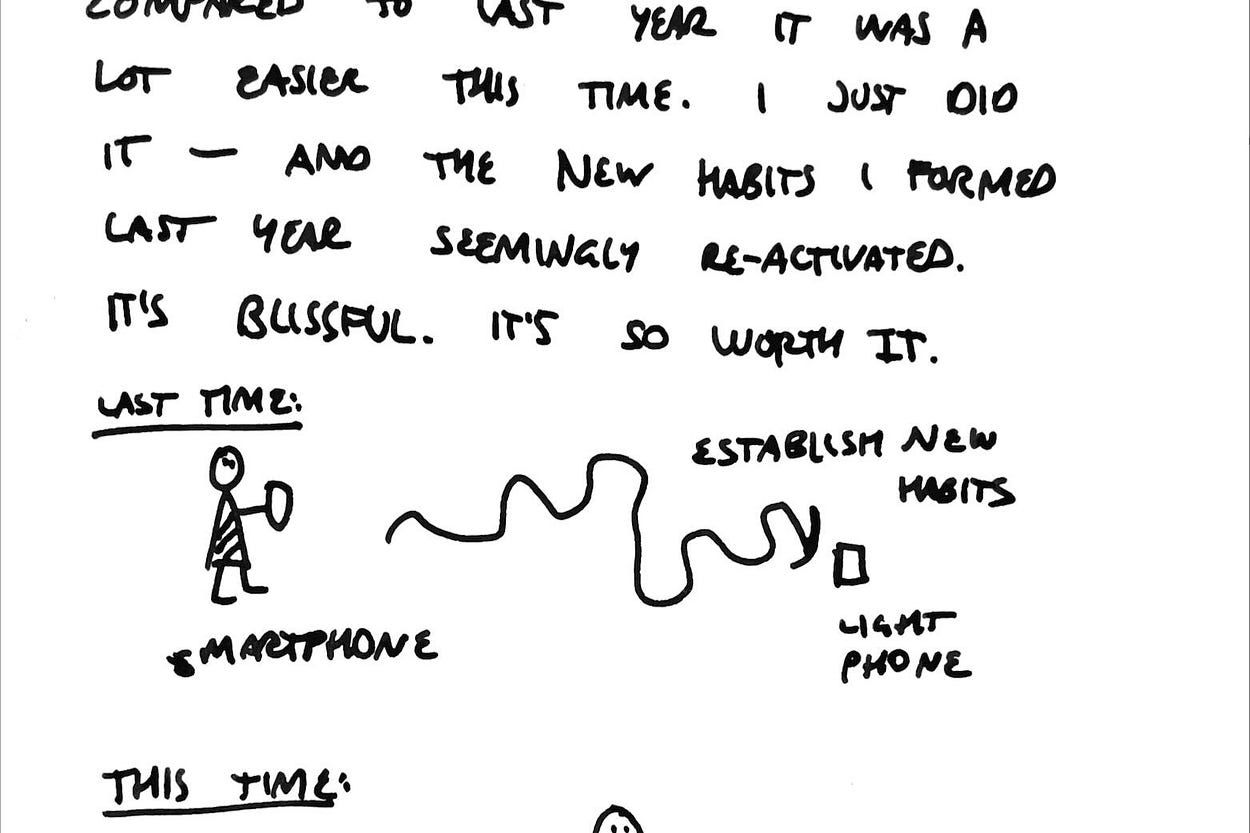 COMPARED TO LAST YEAR IT WAS A
LOT EASIER THIS TIME. I JUST DID
IT — AND THE NEW HABITS I FORMED
LAST YEAR SEEMINGLY RE-ACTIVATED.
IT'S BLISSFUL. IT'S SO WORTH IT.
LAST TIME:
ESTABLISH NEW
HABITS
SMARTPHONE
LIGHT
PHONE
THIS TIME: